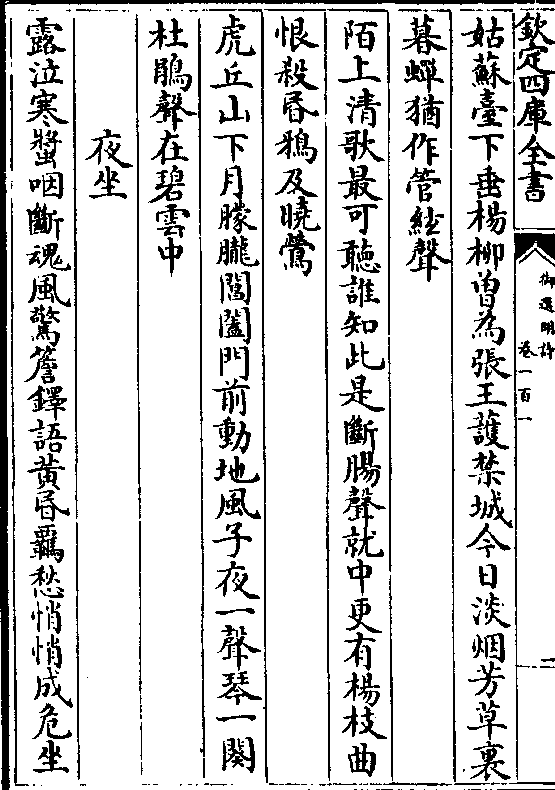 欽定四庫全書
御選明詩
卷一百一
二
姑蘇臺下垂楊柳曾為張王護禁城今日淡烟芳草裏
暮蟬猶作管絃聲
陌上清歌最可聽誰知此是斷腸聲就中更有楊枝曲
恨殺昏鴉及曉鶯
虎丘山下月朦朧閶闔門前動地風子夜一聲琴一闋
杜鵑聲在碧雲中
夜坐
露泣寒螿咽斷魂風驚簷鐸語黃昏羈愁悄悄成危坐